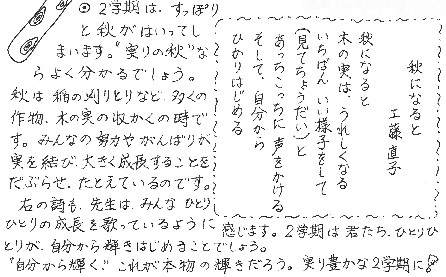 ◎ 2学期は、すっぽり
と秋がはいってし
まいます。“実りの秋”な
らよく分かるでしょう。
秋は稲の刈りとりなど、多くの
作物、木の実の収かくの時で
す。みんなの努力やがんばりが
実を結び、大きく成長することを
だぶらせ、たとえているのです。
右の詩も、先生は、みんなひとり
ひとりの成長を歌っているように
感じます。2学期は君たち、ひとりひ
とりが、自分から輝きはじめることでしょう。
“自分から輝く”これが本物の輝きだろう。実り豊かな2学期に
秋になると
工藤直子
秋になると
木の実は、うれしくなる
いちばん いい様子をして
(見てちょうだい)と
あっちこっちに 声をかける
そして、自分から
ひかりはじめる